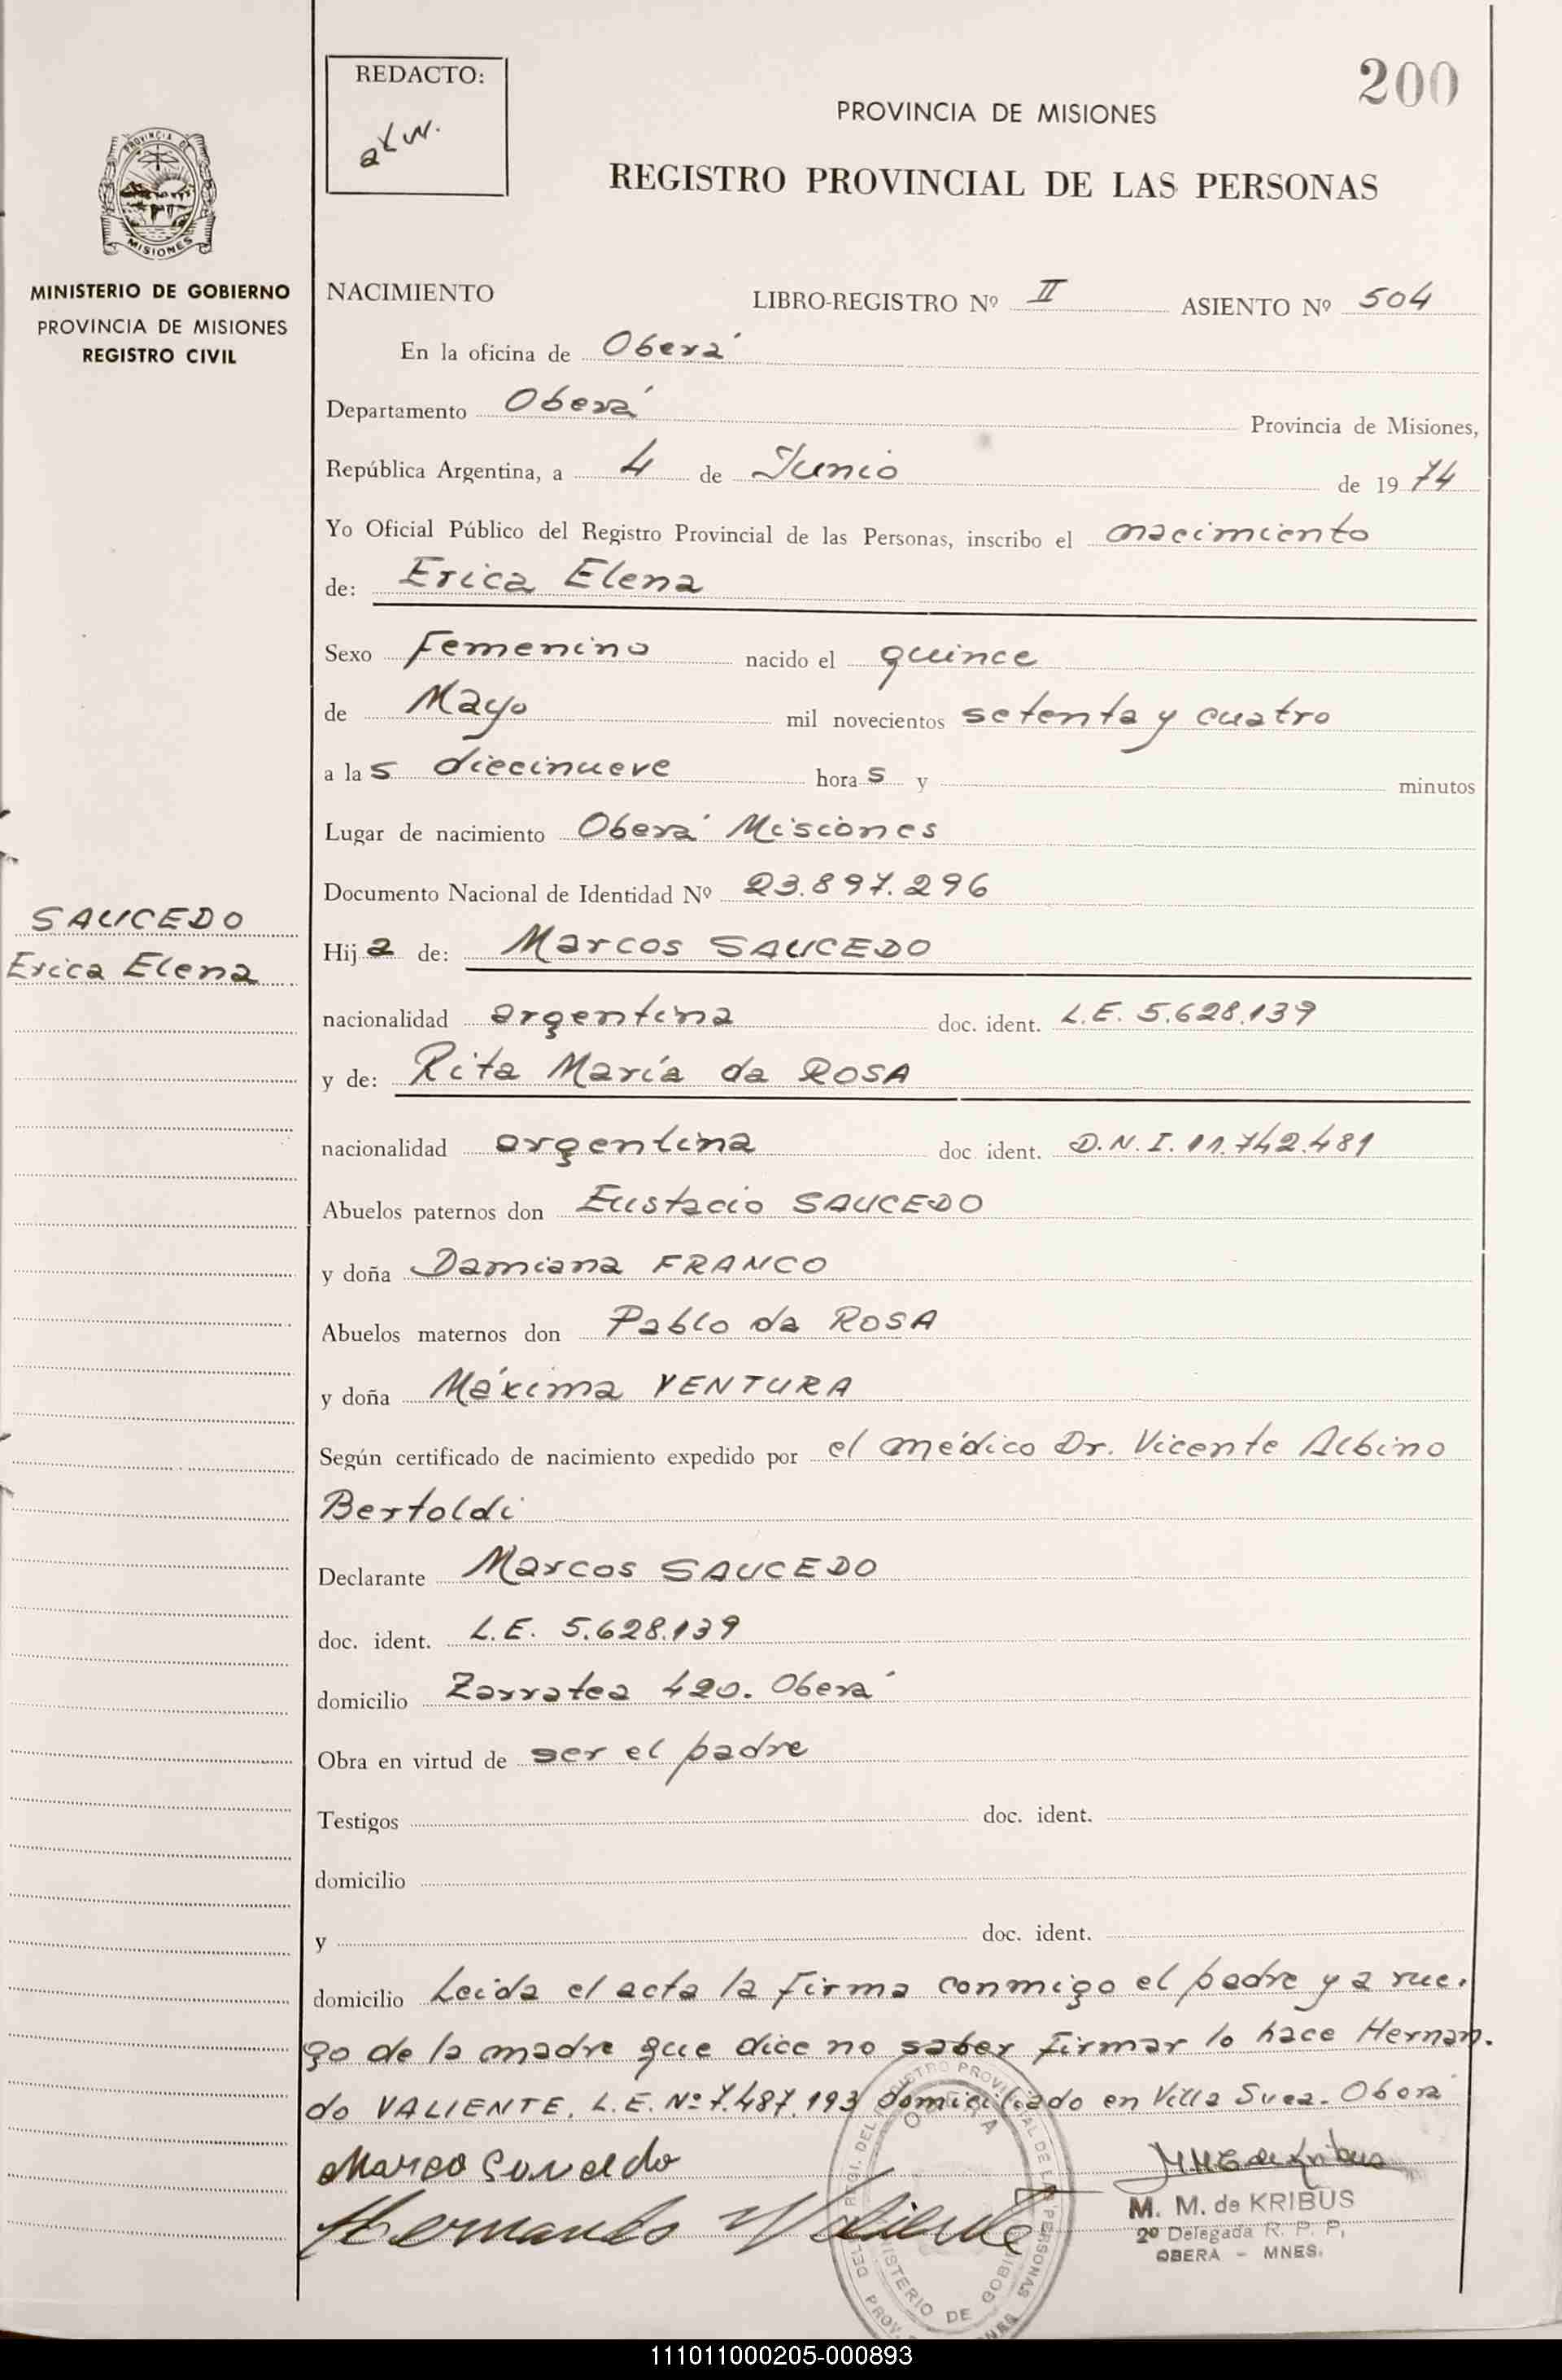 200
REDACTO:
PROVINCIA DE MISIONES
REGISTRO PROVINCIAL DE LAS PERSONAS
PROVINCIA DE
MISIONES
MINISTERIO DE GOBIERNO
PROVINCIA DE MISIONES
REGISTRO CIVIL
NACIMIENTO LIBRO-REGISTRO Nº II ASIENTO Nº 504
En la oficina de Oberá
Departamento Oberá Provincia de Misiones,
República Argentina, a 4 de Junio de 1974
Yo Oficial Público del Registro Provincial de las Personas, inscribo el nacimiento
de: Erica Elena
Sexo Femenino nacido el quince
de Mayo mil novecientos setenta y cuatro
a las diecinueve horas y minutos
Lugar de nacimiento Oberá Misiones
Documento Nacional de Identidad Nº 23.897.296
SAUCEDO
Erica Elena
Hija de: Marcos SAUCEDO
nacionalidad argentina doc. ident. L.E. 5.628.139
y de: Rita María da ROSA
nacionalidad argentina doc ident. D.N.I. 11.742.481
Abuelos paternos don Eustacio SAUCEDO
y doña Damiana FRANCO
Abuelos maternos don Pablo da ROSA
y doña Máxima VENTURA
Según certificado de nacimiento expedido por el médico Dr. Vicente Albino
Bertoldi
Declarante Marcos SAUCEDO
doc. ident. L.E. 5.628.139
domicilio Zarratea 420. Oberá
Obra en virtud de ser el padre
Testigos doc. ident.
domicilio
y doc. ident.
domicilio Leida el acta la firma conmigo el padre y a rue.
go de la madre que dice no saber firmar lo hace Hernan.
do VALIENTE. L.E. Nº 7.487.193 domiciliado en Villa Svea. Oberá
Marco Saucedo
Hernando Valiente
M. M. de KRIBUS
2º Delegada R. P. P,
OBERA - MNES.
OBERA
MINISTERIO DE GOBI
111011000205-000893